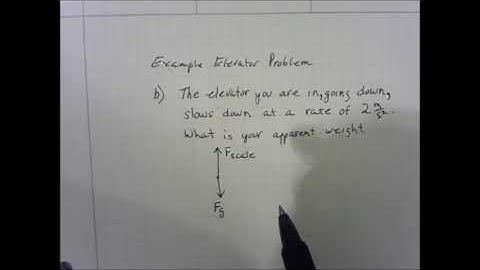 Example Elevator Problem
b) The elevator you are in, going down,
slows down at a rate of 2 m/s².
What is your apparent weight.
Fscale
Fg